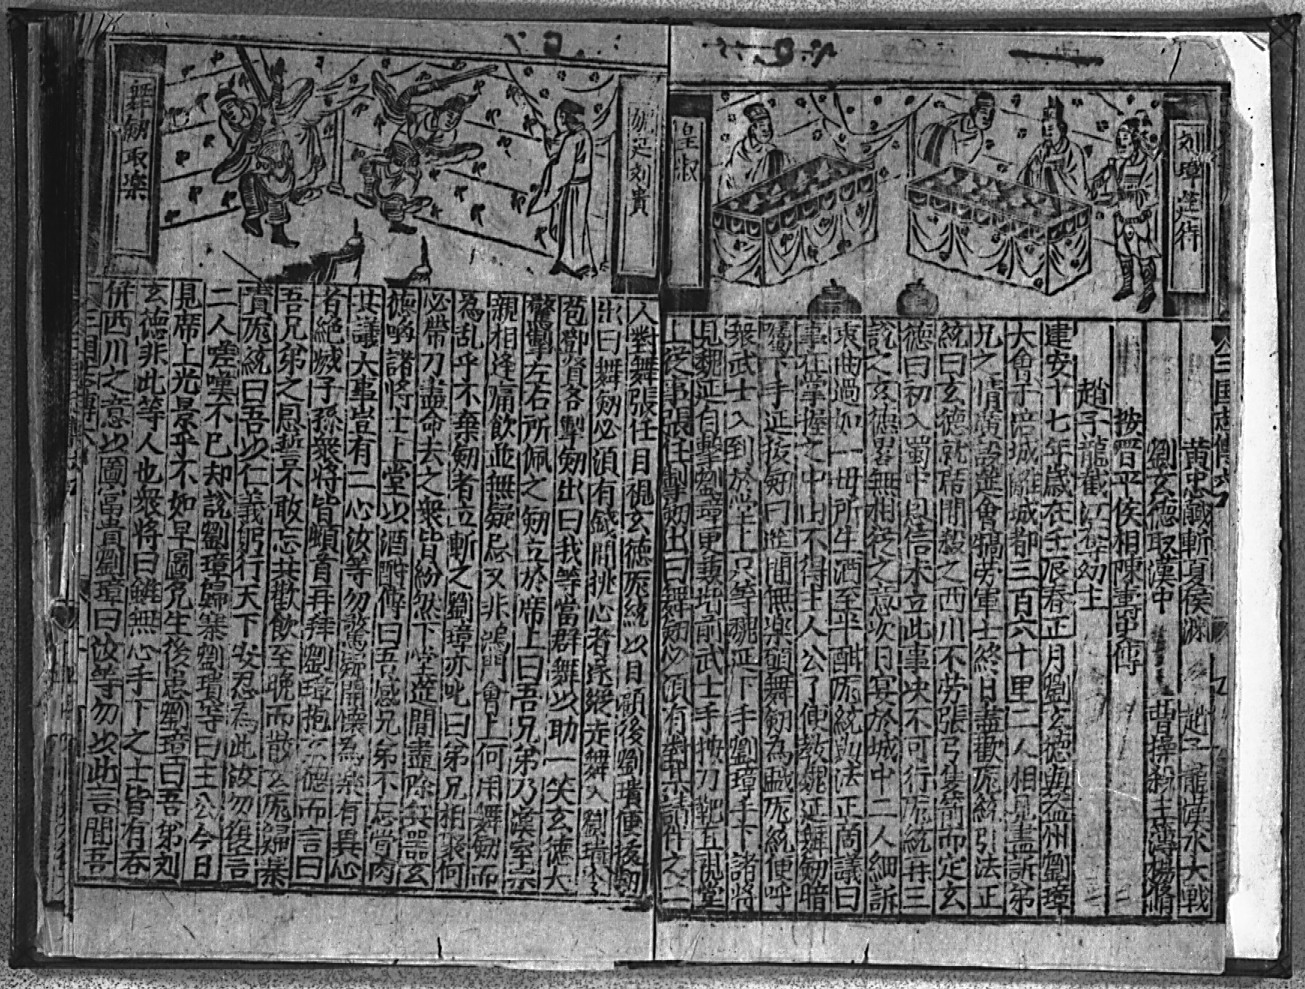 劉璋筵待
皇淑
黃忠馘斬夏侯淵 趙子龍漢水大戰
劉玄德取漢中 曹操殺主簿楊脩
按晋平侯相陳壽史傳
趙子龍截江奪幼主
建安十七年歲在壬辰春正月劉玄德與益州劉璋
大會于涪城離城都三百六十里二人相見盡訴弟
兄之情廣設筵會犒劳軍士終日盡歡龐統引法正
統曰玄德就席間殺之西川不劳張弓隻箭而定玄
德曰初入蜀中恩信未立此事决不可行龐統再三
說之玄德畧無相從之意次日宴於城中二人細訴
衷曲過如一母所生酒至半酣龐統與法正商議曰
事在掌握之中由不得主人公了便教魏延舞劒暗
囑下手延拔劒曰筵間無楽願舞劒為戯龐統便呼
衆武士入到於堂上只等魏延下手劉璋手下諸將
見魏延自擊劉璋更兼堦前武士手按刀靶直視堂
上從事張任掣劒出曰舞劒必須有對某請件之二
龐足刘貴
舞劒取樂
人對舞張任目視玄德龐統以目顧後劉璝便拔劒
出曰舞劒必須有
苞鄧賢各掣劒出曰我等當群舞以助一笑玄德大
驚掣左右所佩之劒立於席上曰吾兄弟乃漢室宗
親相逢痛飲並無疑忌又非鴻門會上何用舞劒而
為乱乎不棄劒者立斬之劉璋亦叱曰弟兄相聚何
必帶刀盡命去之衆皆紛然下堂筵間盡除兵器玄
德喚諸將士上堂以酒酧傳曰吾感兄弟不忘當同
共議大事豈有二心汝等勿驚疑開懷為楽有異心
者絕滅子孫衆將皆頓首再拜劉璋抱玄德而言曰
吾兄弟之恩誓不敢忘共歡飲至晚而散玄德歸寨
責龐統曰吾以仁義躬行天下安忍為此汝勿復言
二人嗟嘆不已却說劉璋歸寨劉璝等曰主公今日
見席上光景乎不如早圖免生後患劉璋曰吾弟刘
玄德非此等人也衆將曰雖無心手下之士皆有吞
併西川之意以圖富貴劉璋曰汝等勿以此言間吾